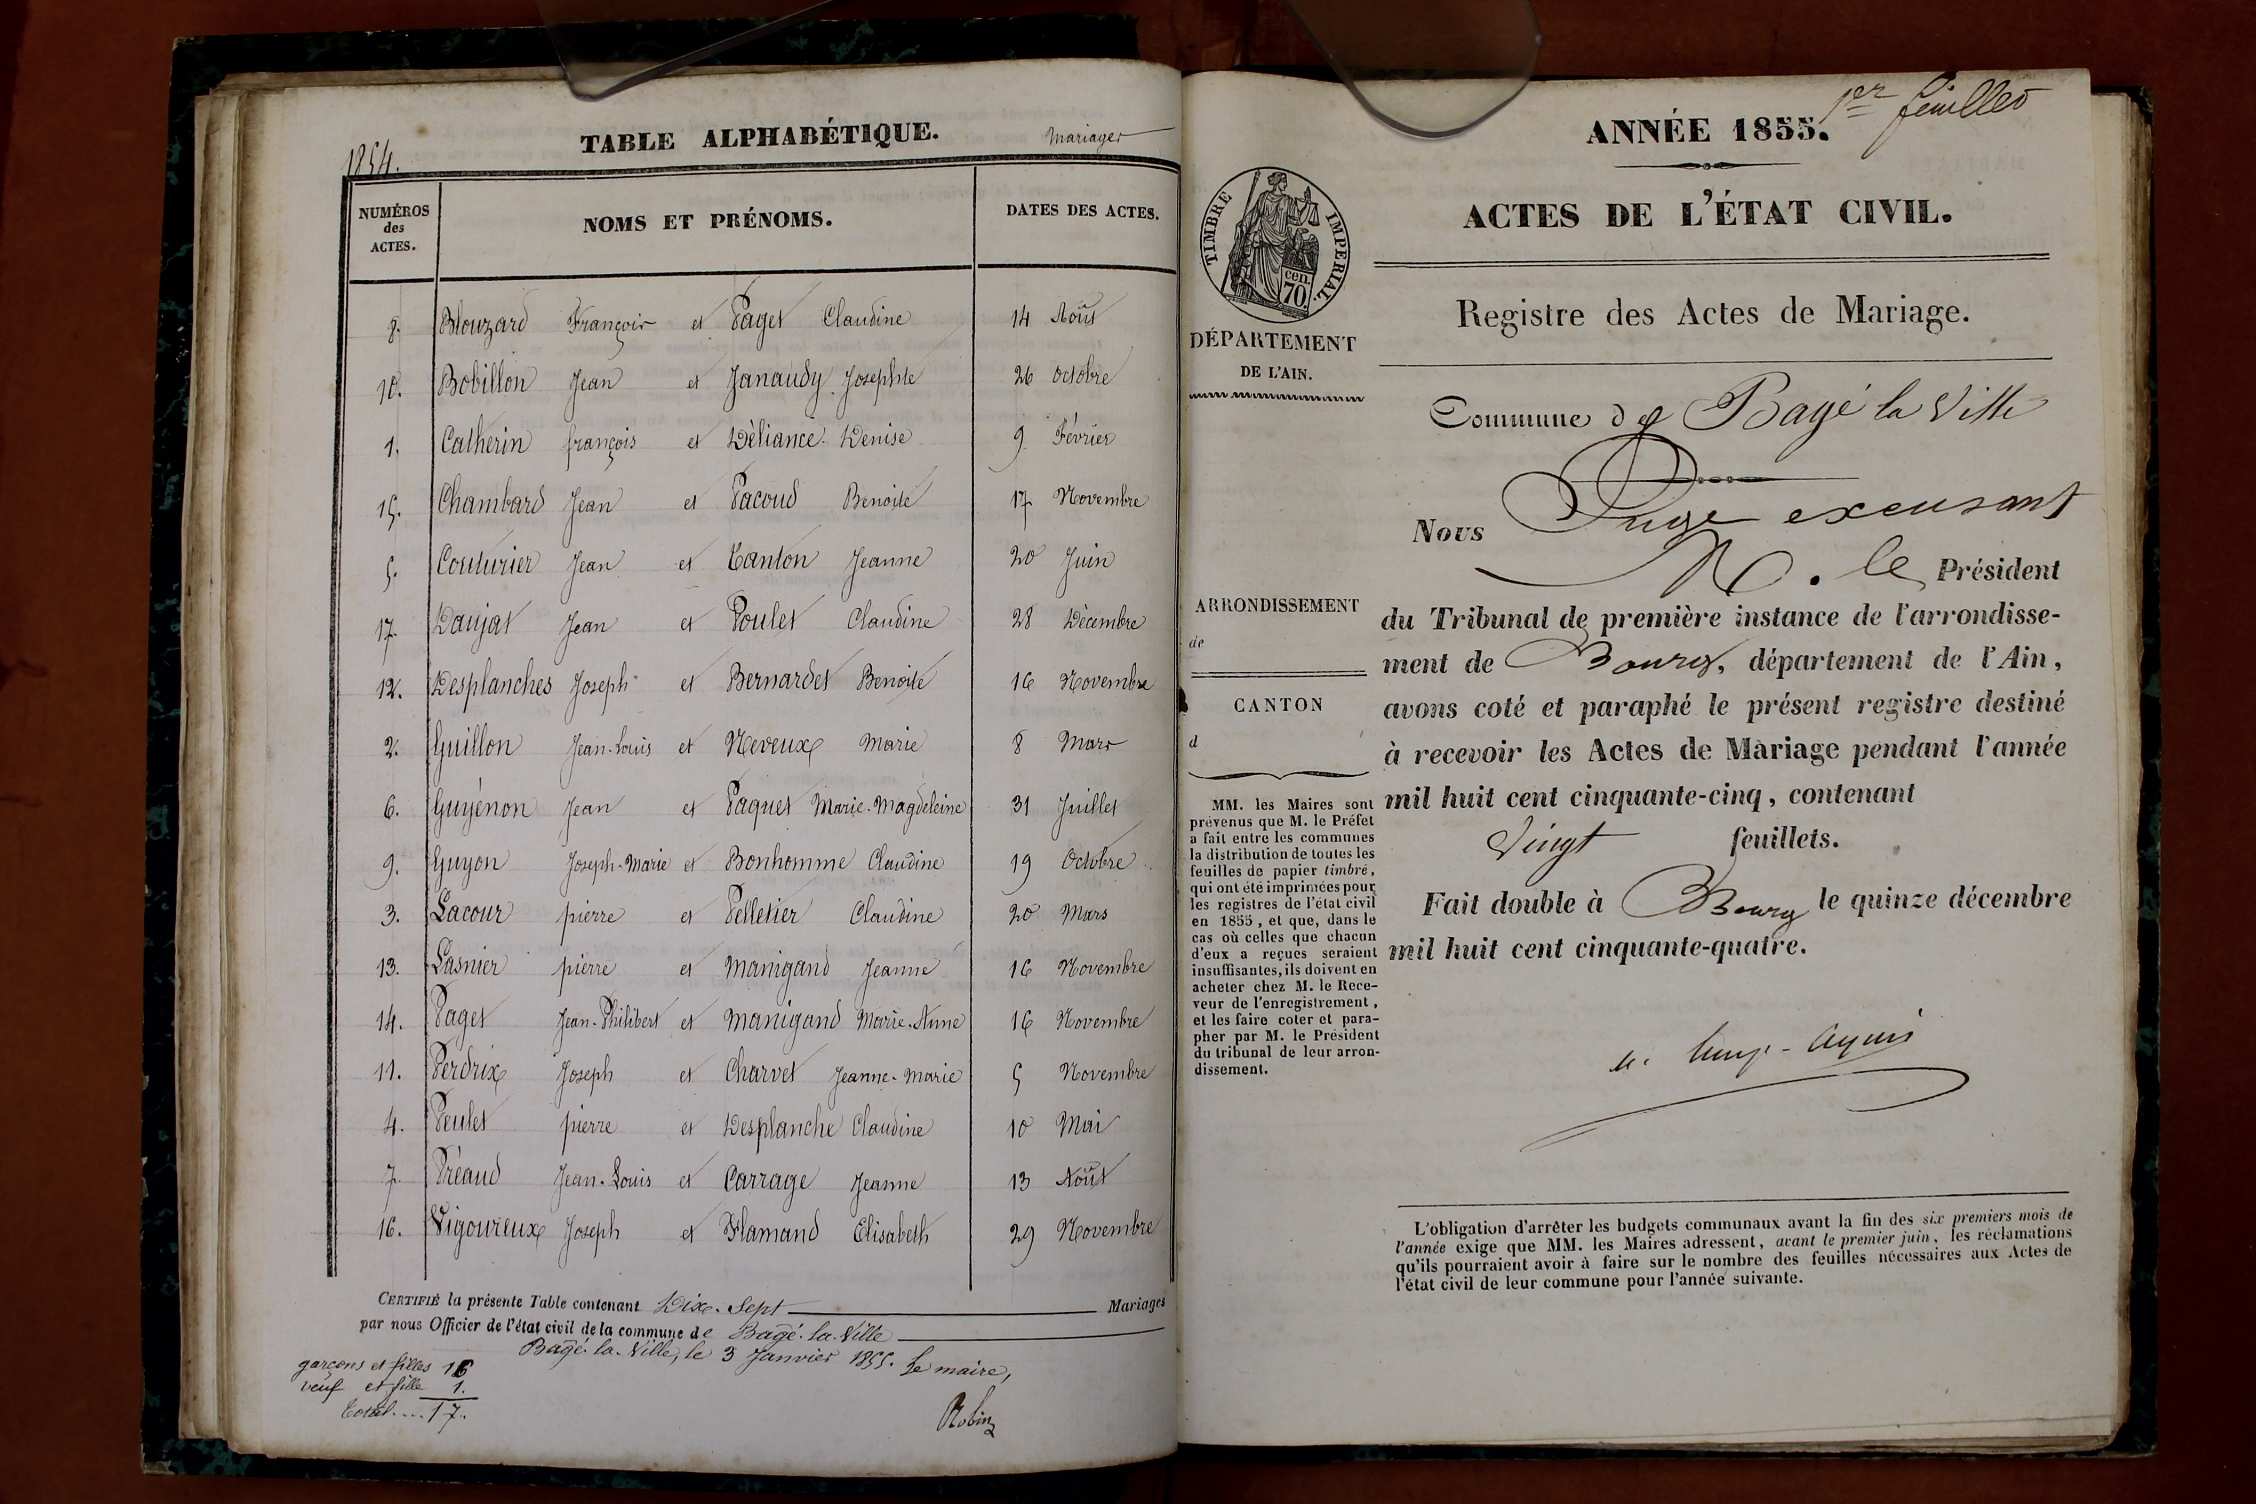 1854.
TABLE ALPHABÉTIQUE.
Mariages
NUMÉROS des ACTES.
NOMS ET PRÉNOMS.
DATES DES ACTES.
8. Blouzard François et Paget Claudine 14 Août
10. Bobillon Jean et Janaudy Josephte 26 octobre
1. Catherin françois et Déliance Denise 9 Février
15. Chambard Jean et Pacoud Benoite 17 Novembre
5. Couturier Jean et Tanton Jeanne 20 Juin
17. Daujat Jean et Poulet Claudine 28 Décembre
12. Desplanches Joseph et Bernardet Benoite 16 Novembre
2. Guillon Jean-Louis et Neveux Marie 8 Mars
6. Guyénon Jean et Paquet Marie-Magdeleine 31 Juillet
9. Guyon Joseph-Marie et Bonhomme Claudine 19 Octobre
3. Lacour pierre et Pelletier Claudine 20 Mars
13. Lasnier pierre et Manigand Jeanne 16 Novembre
14. Paget Jean-Philibert et Manigand Marie-Anne 16 Novembre
11. Perdrix Joseph et Charvet Jeanne-Marie 5 Novembre
4. Peulet pierre et Desplanche Claudine 10 Mai
7. Préaud Jean-Louis et Carrage Jeanne 13 Août
16. Vigoureux Joseph et Flamand Elisabeth 29 Novembre
CERTIFIÉ la présente Table contenant Dix-Sept Mariages
par nous Officier de l'état civil de la commune de Bagé-la-Ville
Bagé-la-Ville, le 3 Janvier 1855. Le maire,
garçons et filles 16
veuf et fille 1.
Total....17.
Robin
1er feuillet
ANNÉE 1855.
ACTES DE L'ÉTAT CIVIL.
TIMBRE IMPERIAL.
cen. 70.
Registre des Actes de Mariage.
DÉPARTEMENT
DE L'AIN.
Commune de Bagé la Ville
Nous Juge excusant
M. le Président
ARRONDISSEMENT
de
CANTON
d
du Tribunal de première instance de l'arrondisse-
ment de Bourg, département de l'Ain,
avons coté et paraphé le présent registre destiné
à recevoir les Actes de Mariage pendant l'année
mil huit cent cinquante-cinq, contenant
Vingt feuillets.
Fait double à Bourg le quinze décembre
mil huit cent cinquante-quatre.
MM. les Maires sont
prévenus que M. le Préfet
a fait entre les communes
la distribution de toutes les
feuilles de papier timbré,
qui ont été imprimées pour
les registres de l'état civil
en 1855, et que, dans le
cas où celles que chacun
d'eux a reçues seraient
insuffisantes, ils doivent en
acheter chez M. le Rece-
veur de l'enregistrement,
et les faire coter et para-
pher par M. le Président
du tribunal de leur arron-
dissement.
L'obligation d'arrêter les budgets communaux avant la fin des six premiers mois de
l'année exige que MM. les Maires adressent, avant le premier juin, les réclamations
qu'ils pourraient avoir à faire sur le nombre des feuilles nécessaires aux Actes de
l'état civil de leur commune pour l'année suivante.